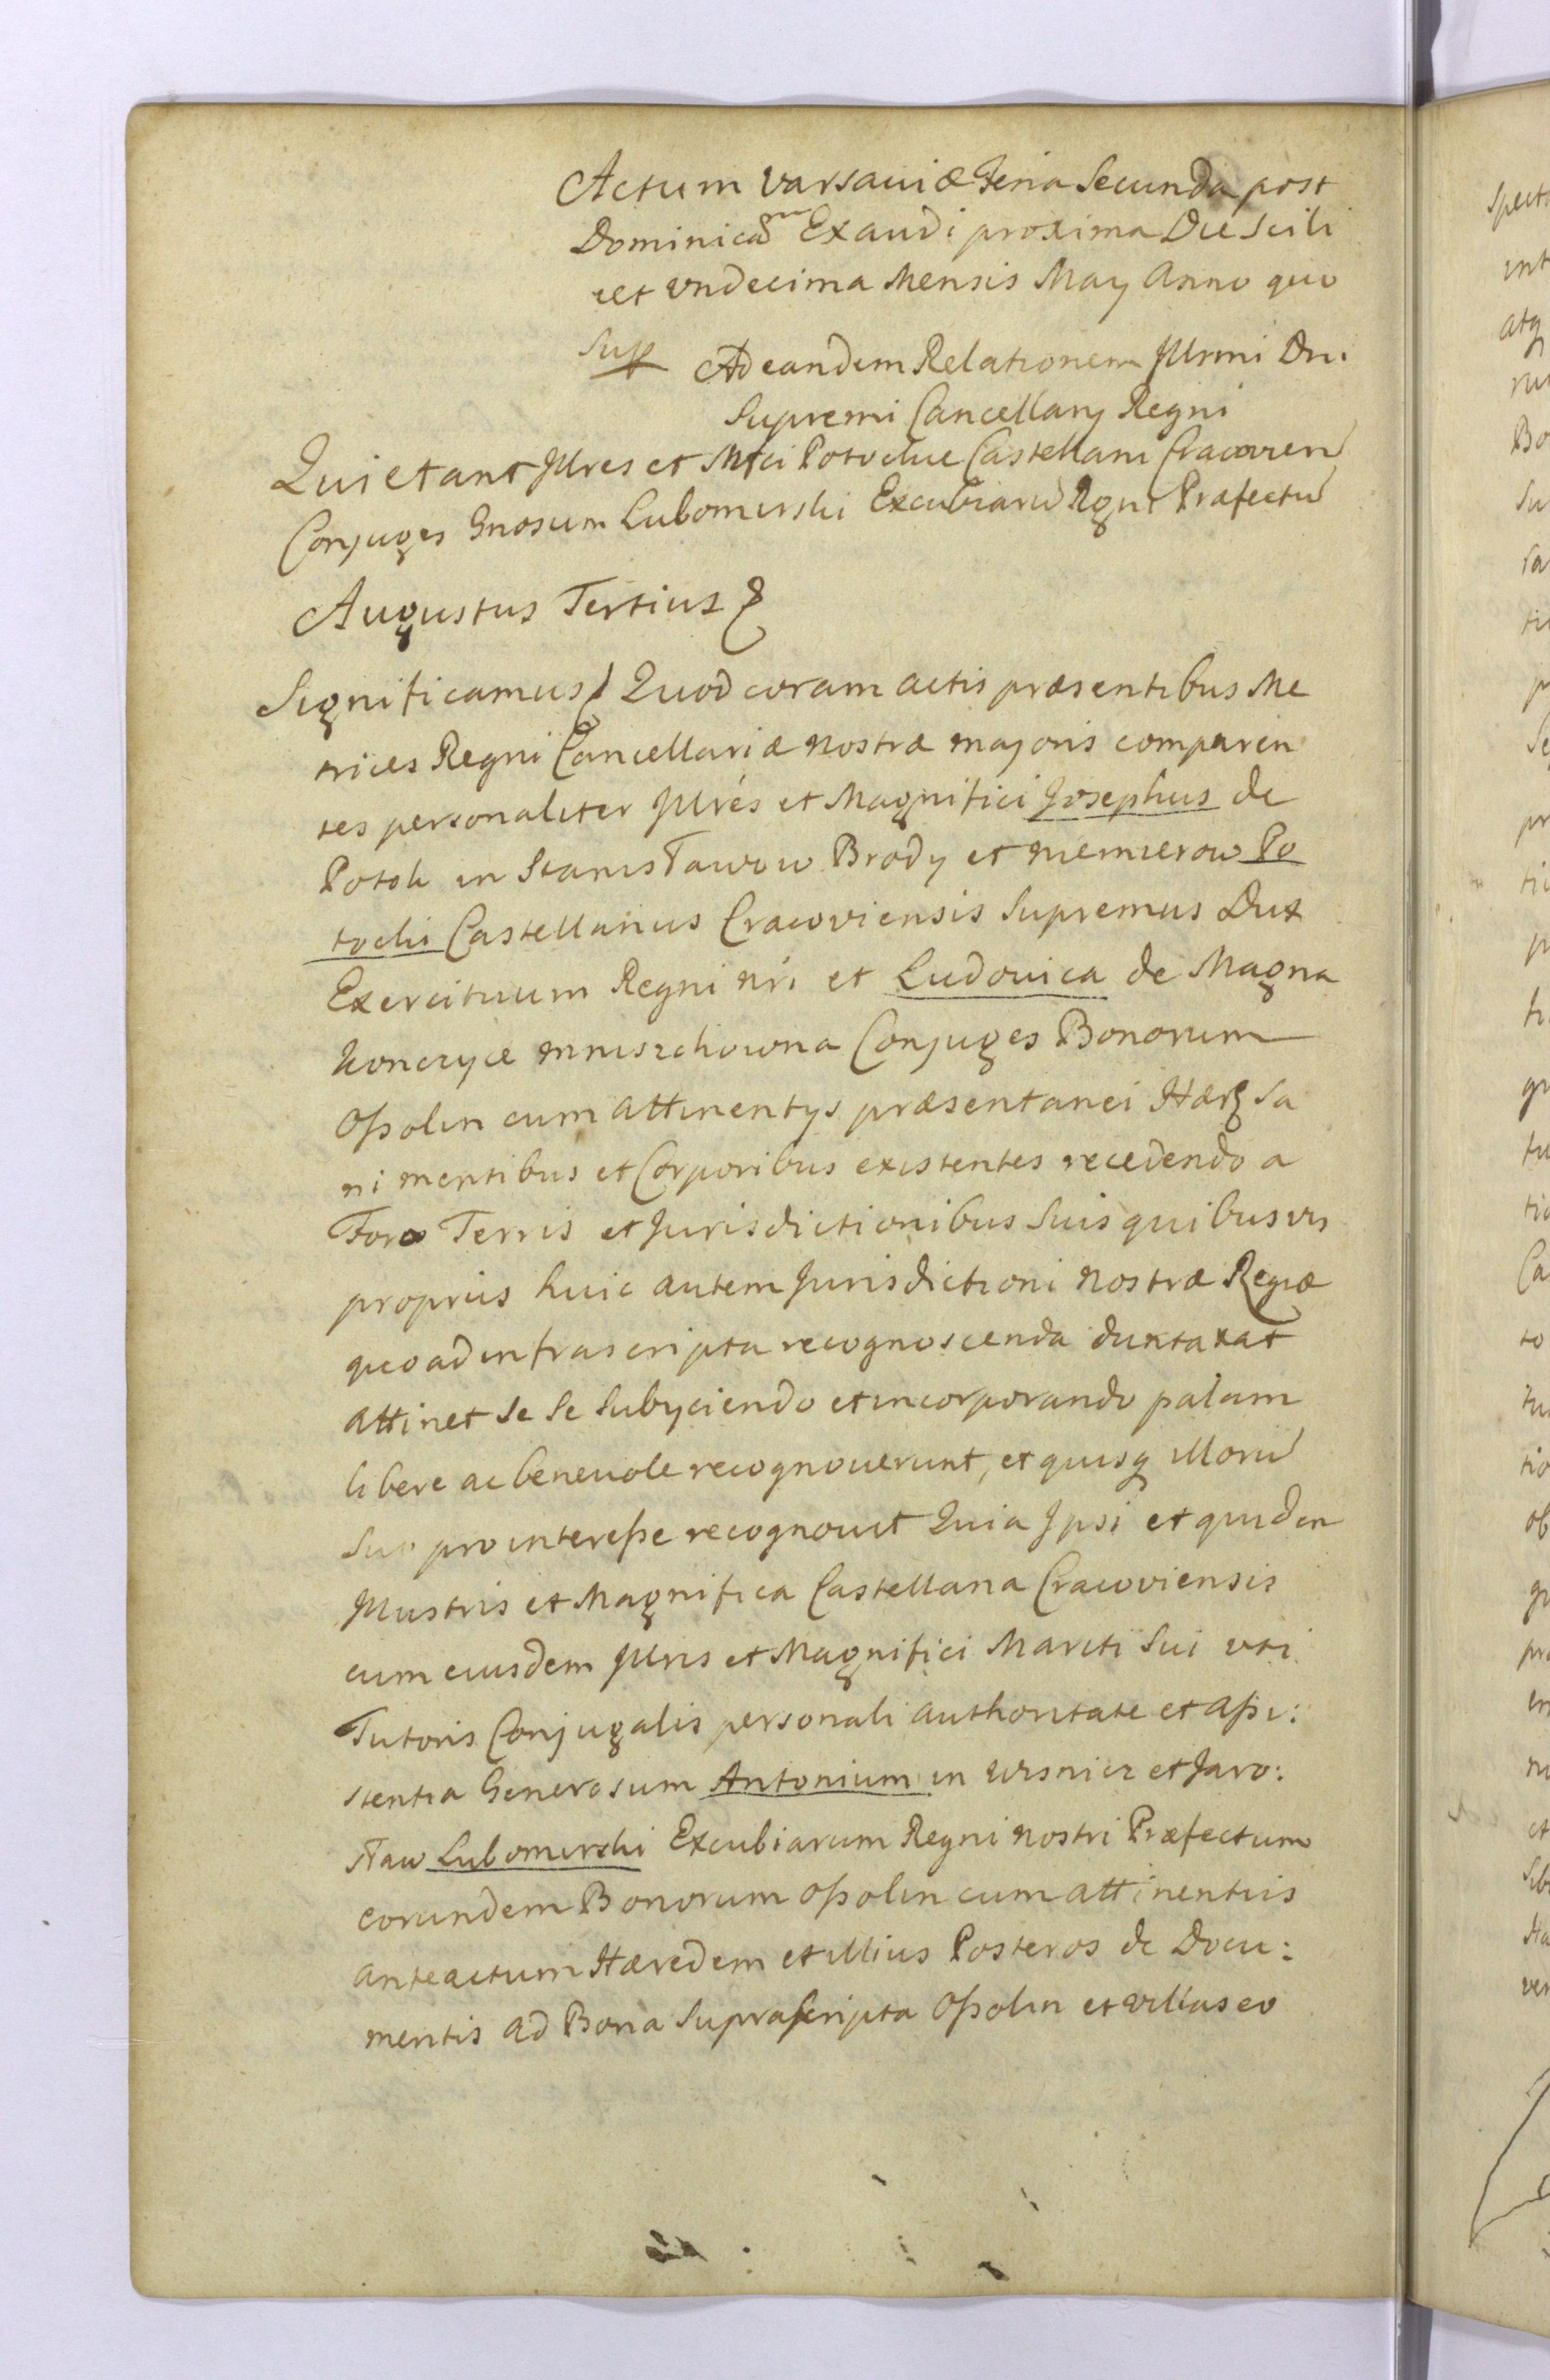 Actum Varsaviæ Feria Secunda post
Dominicam Exaudi proxima Die Scili
cet Undecima Mensis May Anno quo
Sup
Ad eandem Relationem Jllrmi Dni
Supremi Cancellary Regni
Quietant Jllres et Mfci Potockie Castellani Cracovien
Conjuges Gnosum Lubomirski Excubiarū Rgni Præfectū
Augustus Tertius &
Significamus & Quod coram actis præsentibus Me
trices Regni Cancellariæ nostræ majoris comparen
tes personaliter Jllrés et Magnifici Josephus de
Potok in Stanisławow Brody et Niemierow Po
tocki Castellanus Cracoviensis Supremus Dux
Exercituum Regni nri et Ludovica de Magna
Konczyce Mniszchowna Conjuges Bonorum
Ossolin cum attinentys præsentanei Hærs Sa
ni mentibus et Corporibus existentes recedendo a
Foro Terris et Jurisdictionibus Suis quibusvis
proprüs huic autem Jurisdictioni nostræ Regiæ
quo ad infrascripta recognoscenda duntaxat
attinet Se Se Subyciendo et incorporando palam
libere ac benevole recognoverunt, et quisq illorū
Suo pro interesse recognovit Quia Jpsi et quidem
Jllustris et Magnifica Castellana Cracoviensis
cum eiusdem Jllris et Magnifici Mariti Sui uti
Tutoris Conjugalis personali authoritate et assi:
stentia Generosum Antonium in Wisnicz et Jaro:
sław Lubomirski Excubiarum Regni nostri Præfectum
eorundem Bonorum Ossolin cum attinentiis
anteactum Hæredem et illius Posteros de Docu:
mentis ad Bona Suprascripta Ossolin et villas eo